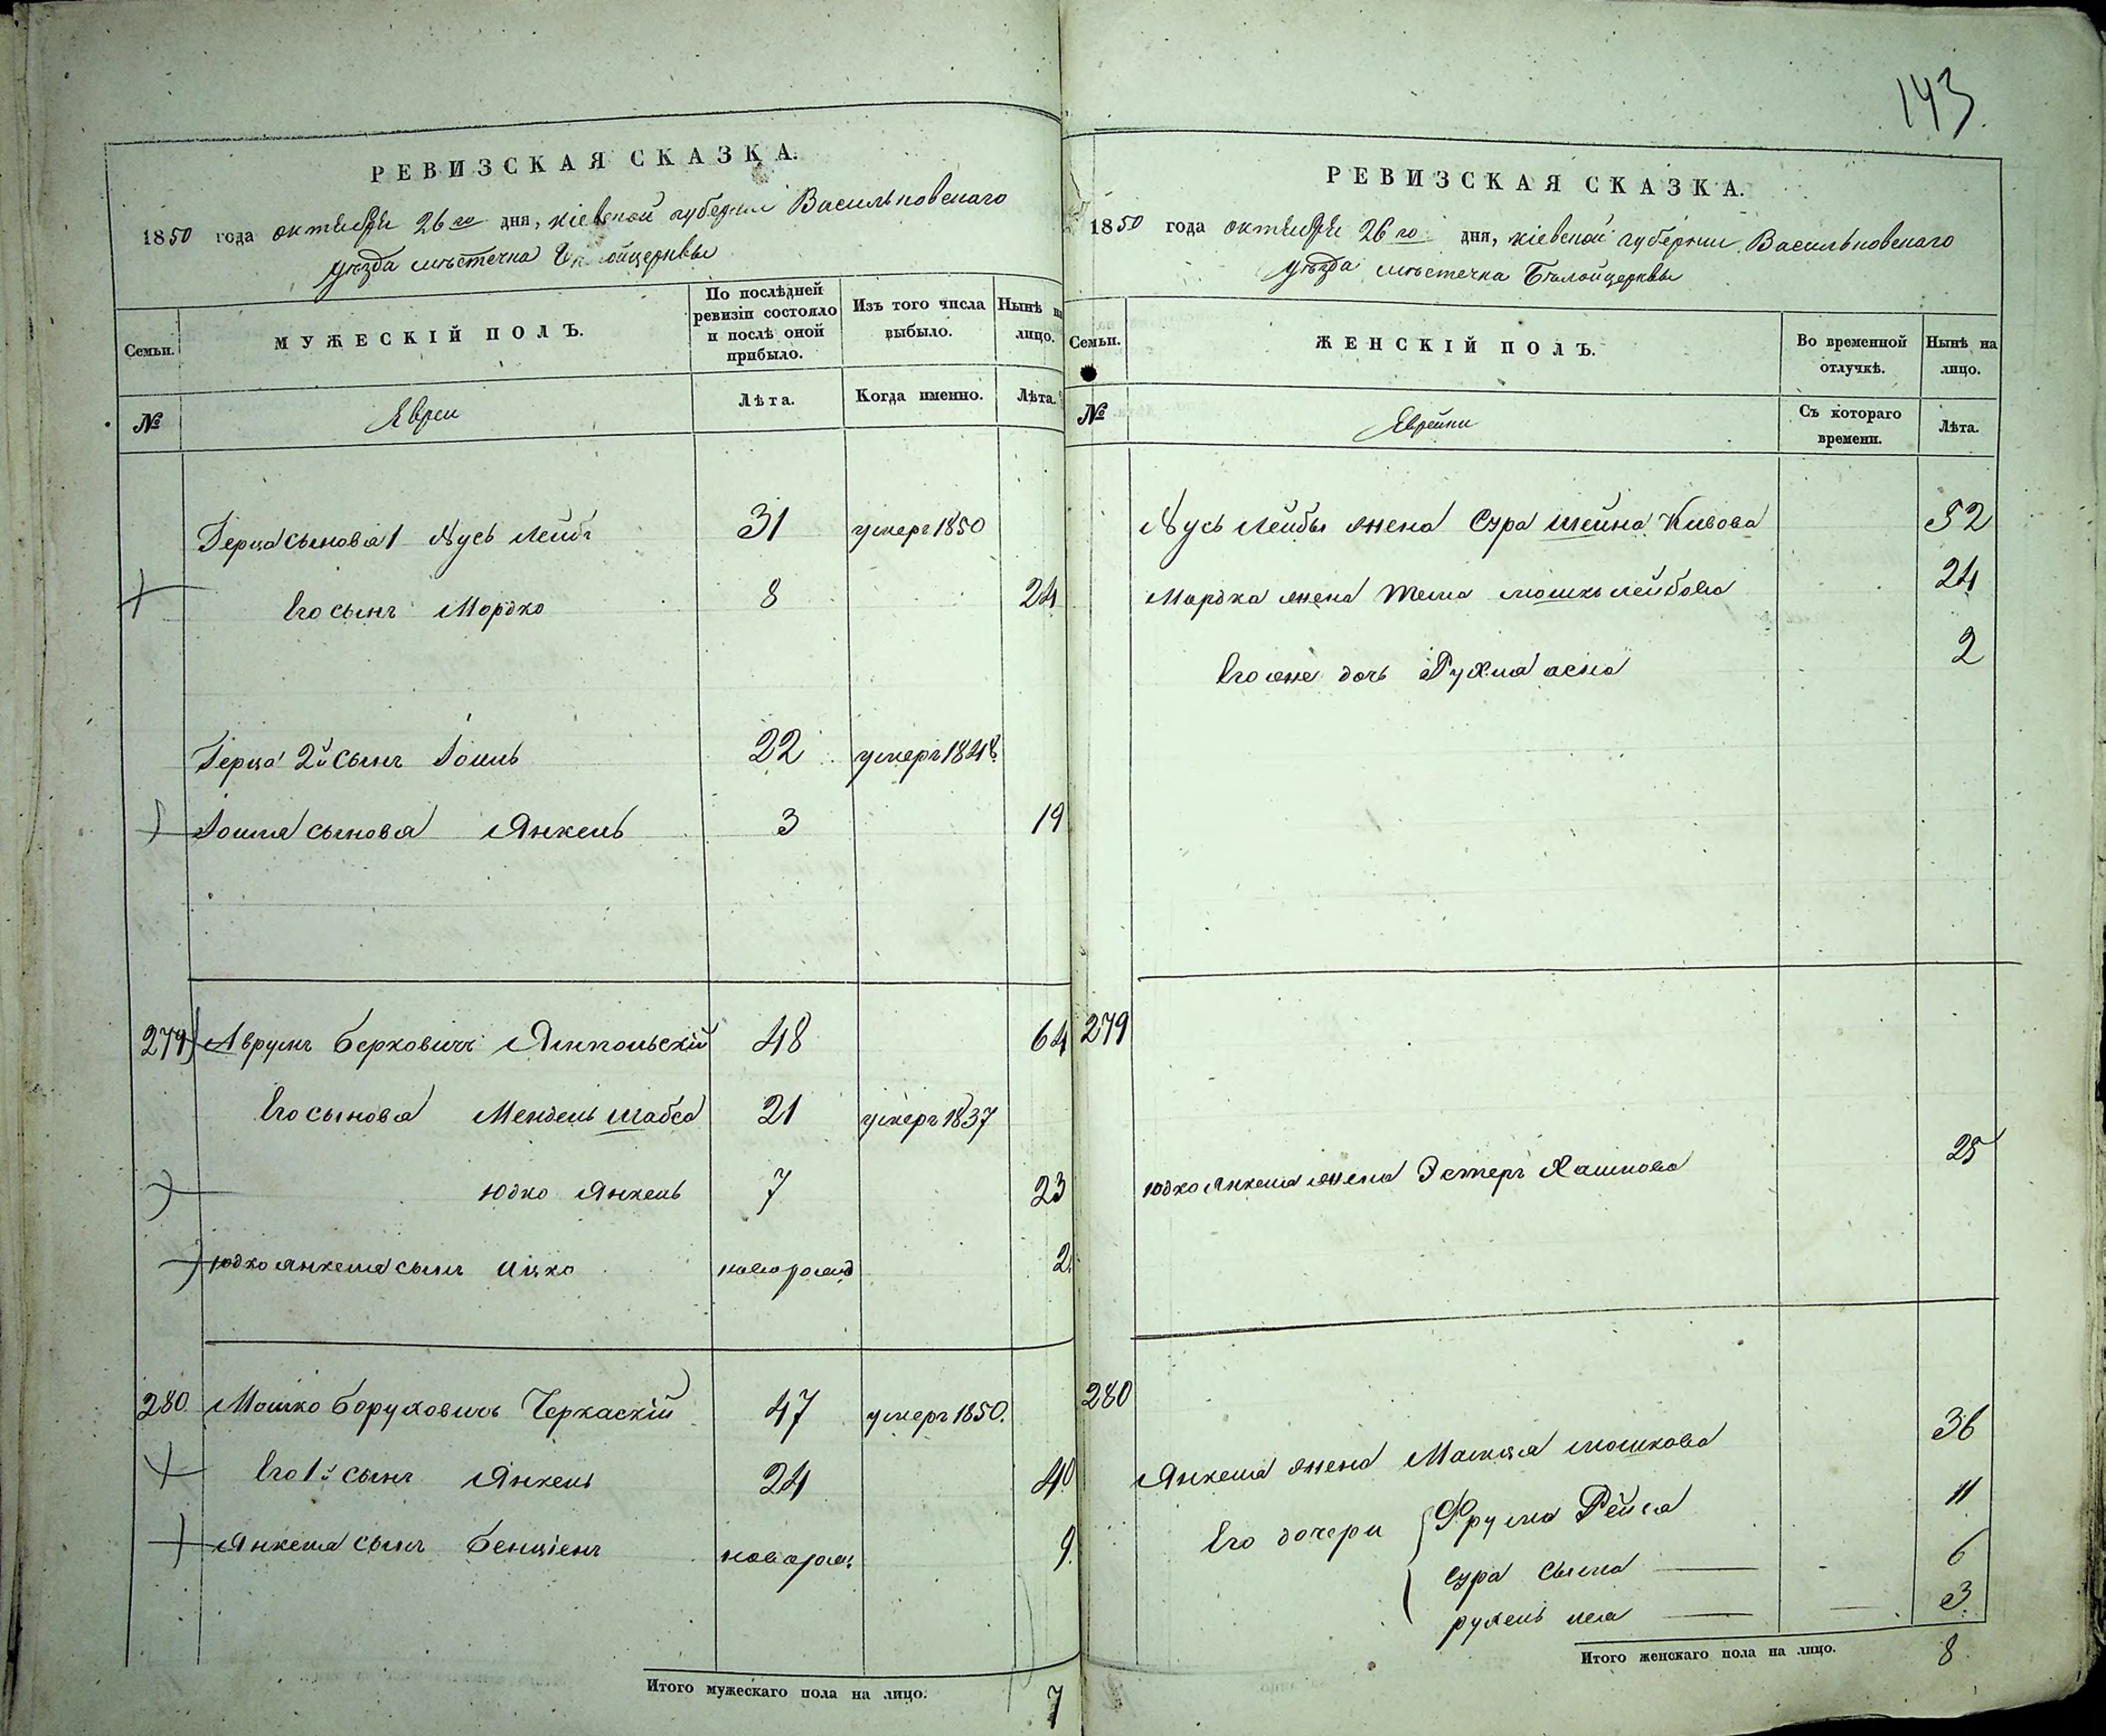 143.
РЕВИЗСКАЯ СКАЗКА.
1850 года октября 26го дня, кіевской губерніи Васильковскаго
уѣзда мѣстечка Бѣлойцерквы
Семьи.
МУЖЕСКІЙ ПОЛЪ.
По послѣдней ревизіи состояло и послѣ оной прибыло.
Изъ того числа выбыло.
Нынѣ на лицо.
№
Евреи
Лѣта.
Когда именно.
Лѣта.
Герца сыновья 1 Лейб 31 умеръ 1850
Его сынъ Мордко 8 24
Герца 2й сынъ Іошь 22 умеръ 1848
сыновья Янкель 3 19
279 Аврумъ Берковичъ Ямпольскій 48 64
Его сыновья Мендель Шабса 21 умеръ 1837
Юдко Янкель 7 23
Юдко Янкеля сынъ Ицко новорожд 2
280 Мошко Боруховичъ Черкаскій 47 умеръ 1850.
Его 1й сынъ Янкель 24 40
Янкеля сынъ Бенціенъ новорож 9
Итого мужескаго пола на лицо. 7
РЕВИЗСКАЯ СКАЗКА.
1850 года октября 26го дня, кіевской губерніи Васильковскаго
уѣзда мѣстечка Бѣлойцерквы
Семьи.
ЖЕНСКІЙ ПОЛЪ.
Во временной отлучкѣ.
Нынѣ на лицо.
№
Еврейки
Съ котораго времени.
Лѣта.
Лейбы жена Сура Шейна Кивова 52
Мордка жена Тема Мошко Лейбова 24
Его же дочь Рухля 2
279
Юдко Янкеля жена Эстеръ Хаимова 25
280
Янкеля жена Мошкова 36
Его дочери Фрума Рейзя 11
Сура Сыма 6
Рухель Лея 3
Итого женскаго пола на лицо. 8